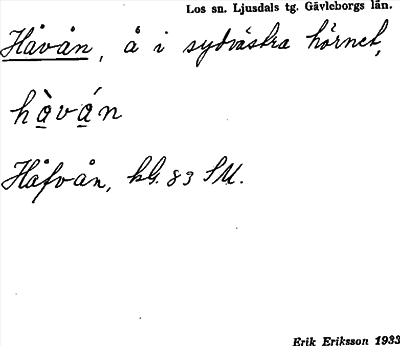 Los sn. Ljusdals tg. Gävleborgs län.
Håvån, å i sydvästra hörnet,
hàván
Håfvån, bl. 83 SM.
Erik Eriksson 1933